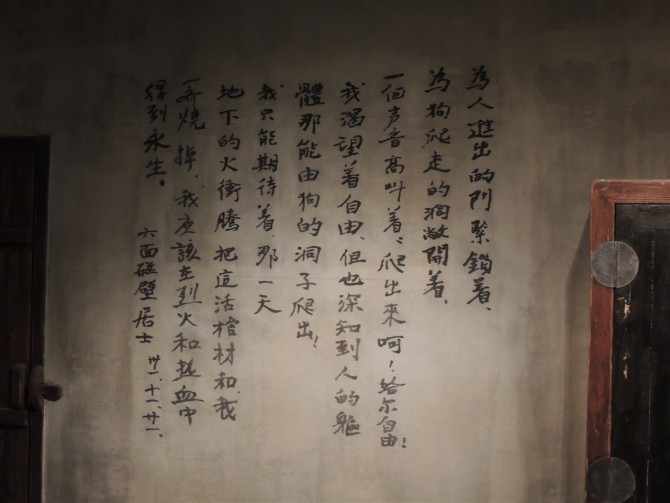 為人進出的門緊鎖着、
為狗爬走的洞敞開着、
一個声音高叫着:爬出來呵!給尔自由!
我渴望着自由、但也深知到人的軀
體那能由狗的洞子爬出!
我只能期待着、那一天
地下的火衝騰把這活棺材和我
一齐燒掉,我应該在烈火和热血中
得到永生。
六面碰壁居士 卅一、十一、廿一、